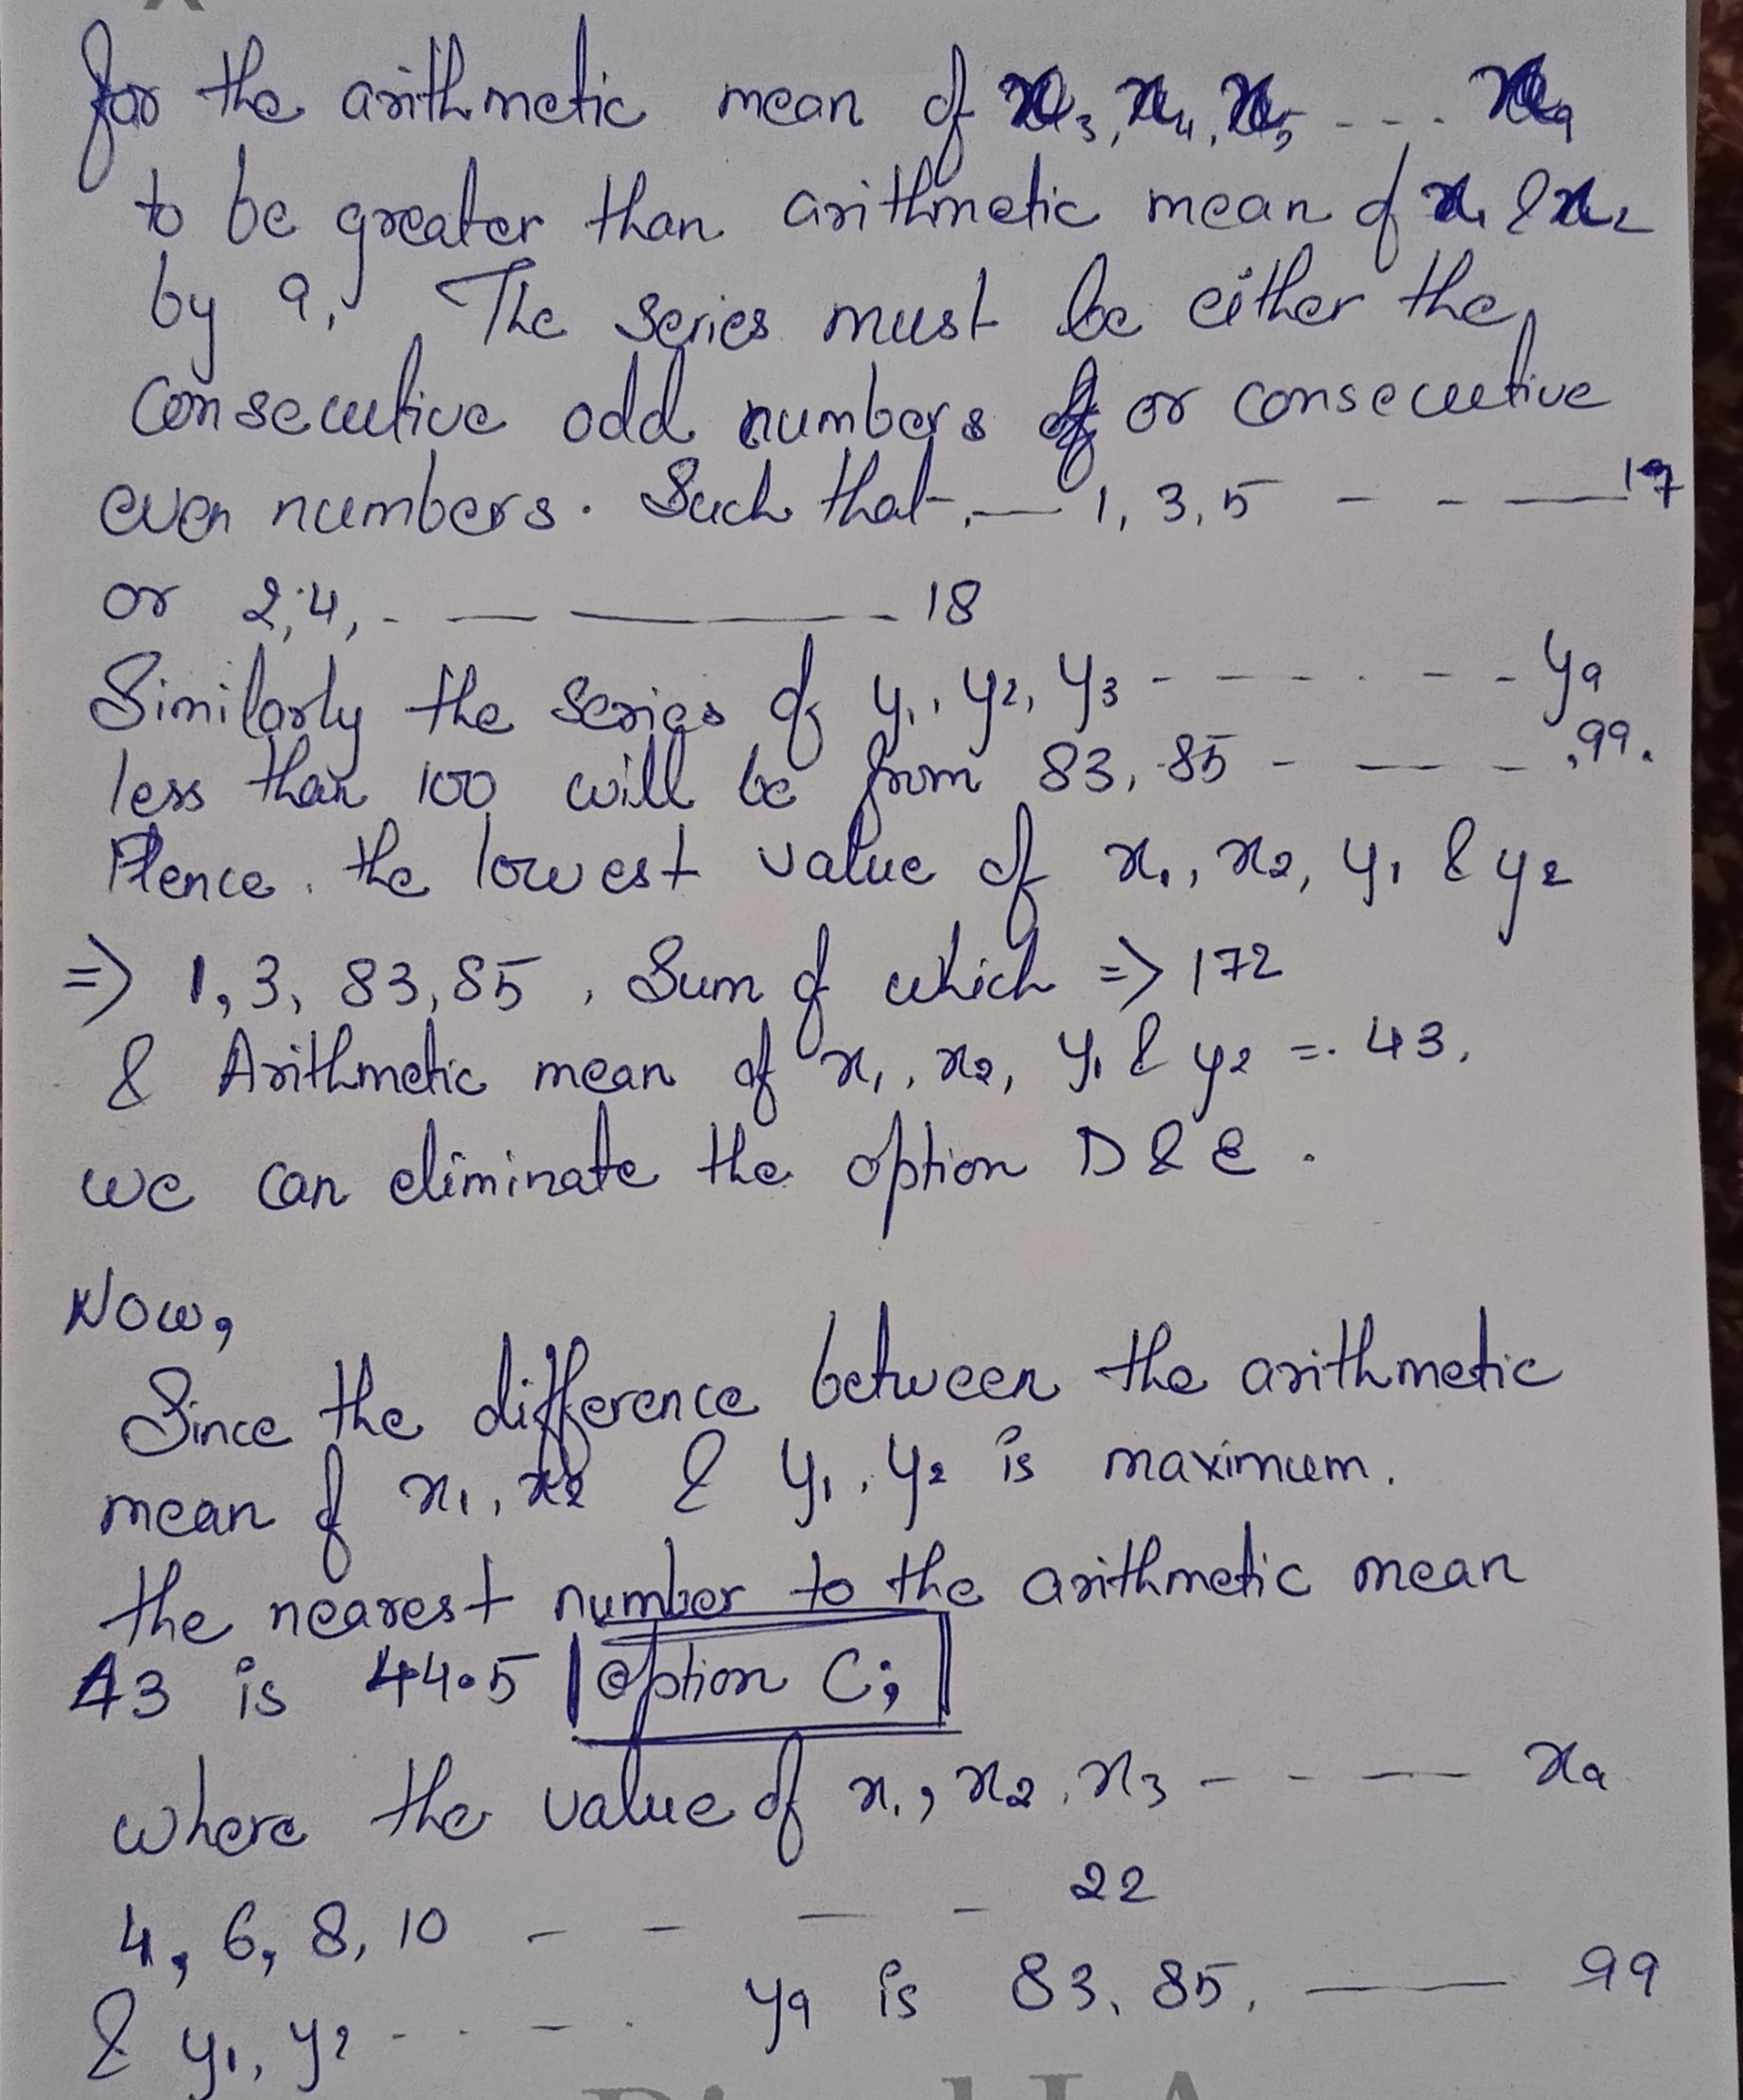 for the arithmetic mean of x3, x4, x5 - - - . x9
to be greater than arithmetic mean of x1 & x2
by 9, The series must be either the
consecutive odd numbers or consecutive
even numbers. Such that, — 1, 3, 5 - - — 17
or 2, 4, - — — - 18
Similarly the series of y1, y2, y3 - - - - . - - - y9
less than 100 will be from 83, 85 - — — - , 99.
Hence, the lowest value of x1, x2, y1 & y2
=> 1, 3, 83, 85, Sum of which => 172
& Arithmetic mean of x1, x2, y1 & y2 = 43,
we can eliminate the option D & E.
Now,
Since the difference between the arithmetic
mean of x1, x2 & y1, y2 is maximum.
the nearest number to the arithmetic mean
43 is 44.5 option C;
where the value of x1, x2, x3 - - - — x9
4, 6, 8, 10 - - - - 22
& y1, y2 - . - . y9 is 83, 85, — 99